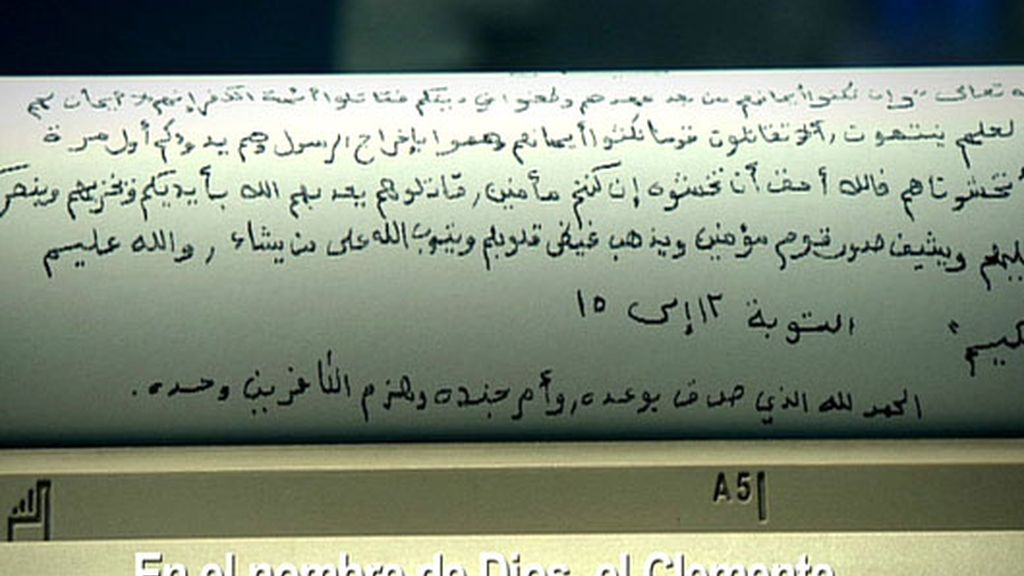 ه تعالى "وإن نكثوا أيمانهم من بعد عهدهم وطعنوا في دينكم فقاتلوا أئمة الكفر إنهم لا أيمان لهم
لعلهم ينتهون, ألا تقاتلون قوما نكثوا أيمانهم وهموا بإخراج الرسول وهم بدءوكم أول مرة
أتخشوناهم فالله أحق أن تخشوه إن كنتم مأمنين, قاتلوهم يعذبهم الله بأيديكم ويخزيهم وينصركم
عليهم ويشف صدور قوم مؤمنين ويذهب غيض قلوبكم ويتوب الله على من يشاء, والله عليم
حكيم"
التوبة ١٢ إلى ١٥
الحمد لله الذي صدق بوعده, وأم جنده وهزم الكافرين وحده.
A5
En el nombre de Dios, el Clemente